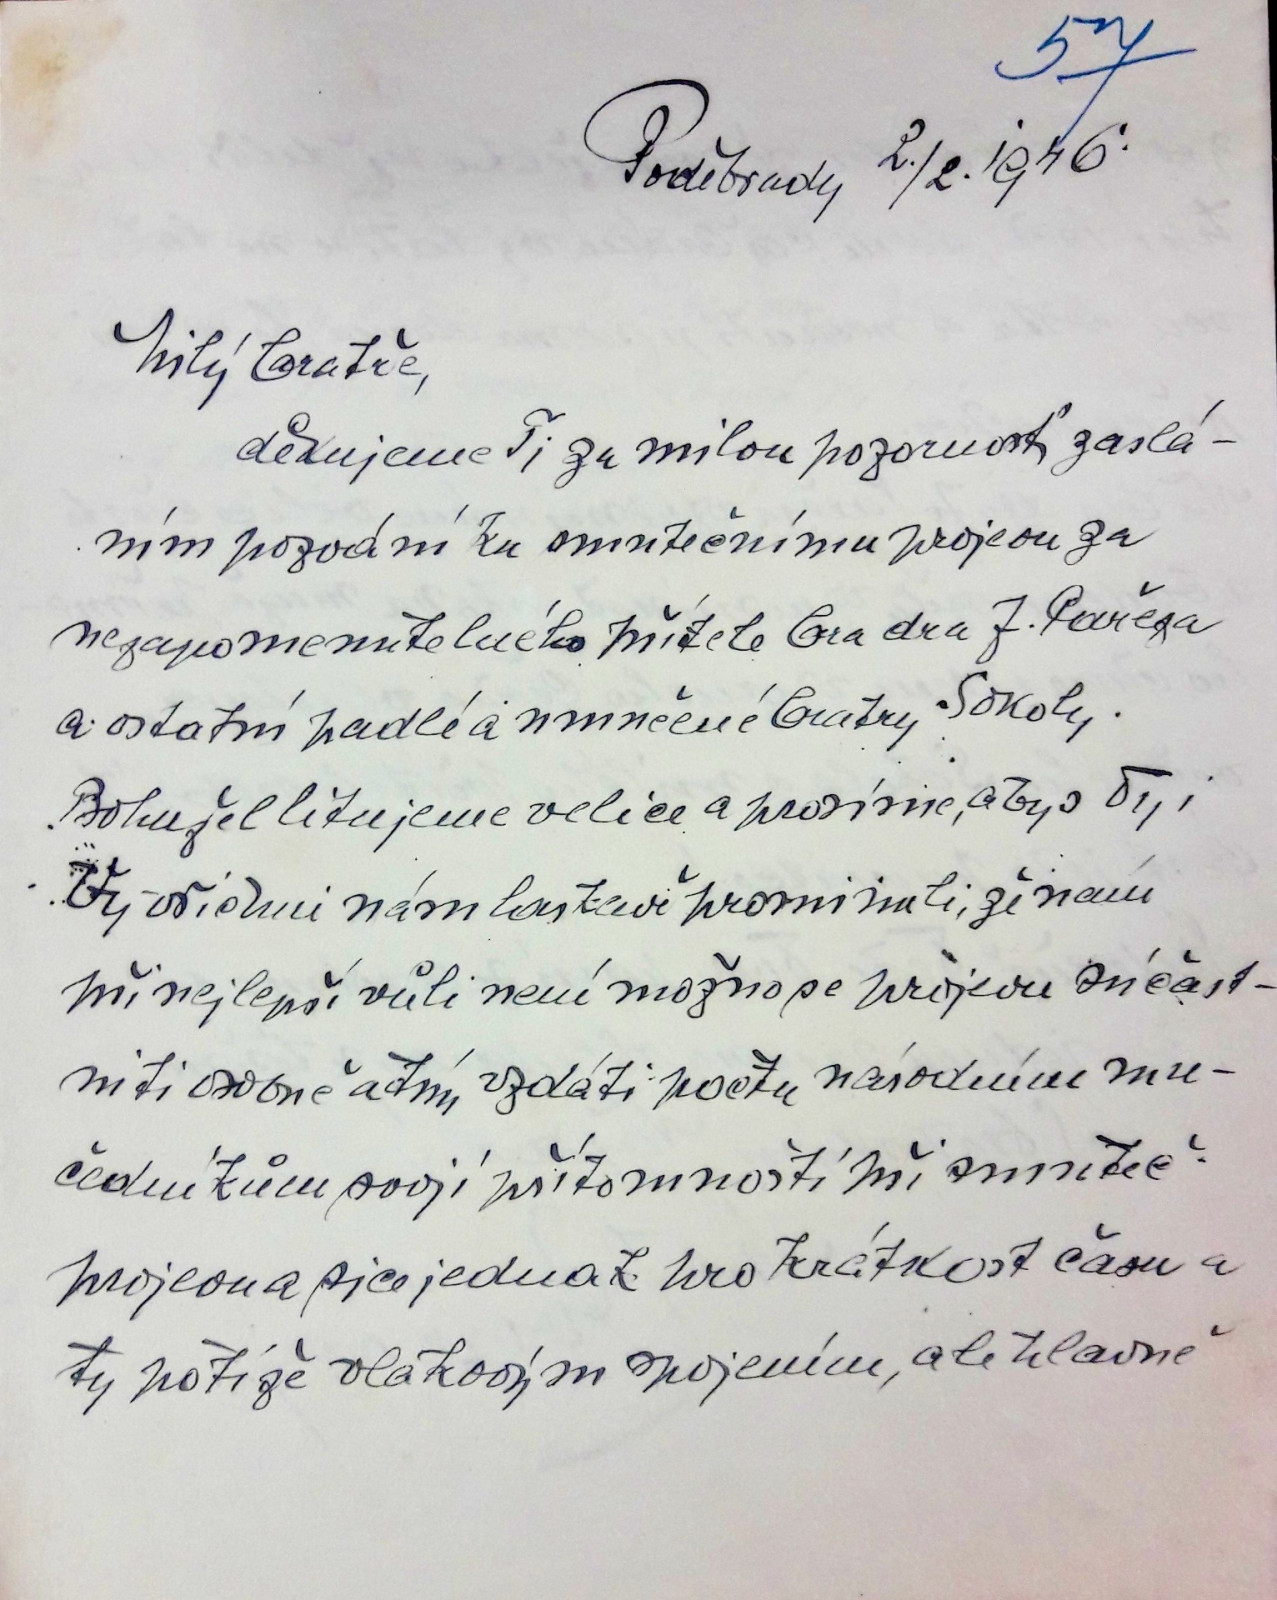 57
Poděbrady 2./2. 1946.
Milý bratře,
děkujeme Ti za milou pozornost, zaslá-
ním pozvání ku smutečnímu projevu za
nezapomenutelného přítele bra dra J. Pařeza
a ostatní padlé a umučené bratry Sokoly.
Bohužel litujeme velice a prosíme, abys Ty i
Vy všichni nám laskavě prominuli, že nám
při nejlepší vůli není možno se projevu súčast-
niti osobně a tím vzdáti poctu národním mu-
čedníkům svojí přítomností při smuteč.
projevu a sice jednak pro krátkost času a
ty potíže vlakovým spojením, ale hlavně